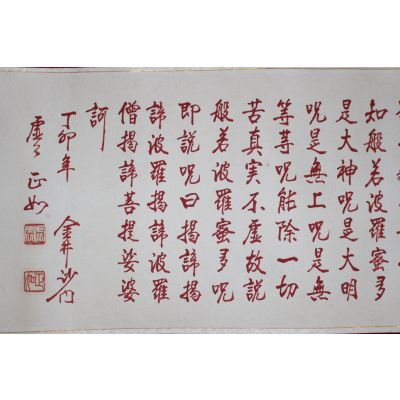 知般若波羅蜜多
是大神呪是大明
呪是無上呪是無
等等呪能除一切
苦真実不虚故説
般若波羅蜜多呪
即説呪曰揭諦揭
諦波羅揭諦波羅
僧揭諦菩提娑婆
訶
丁卯年 金井沙門
虚々 正如